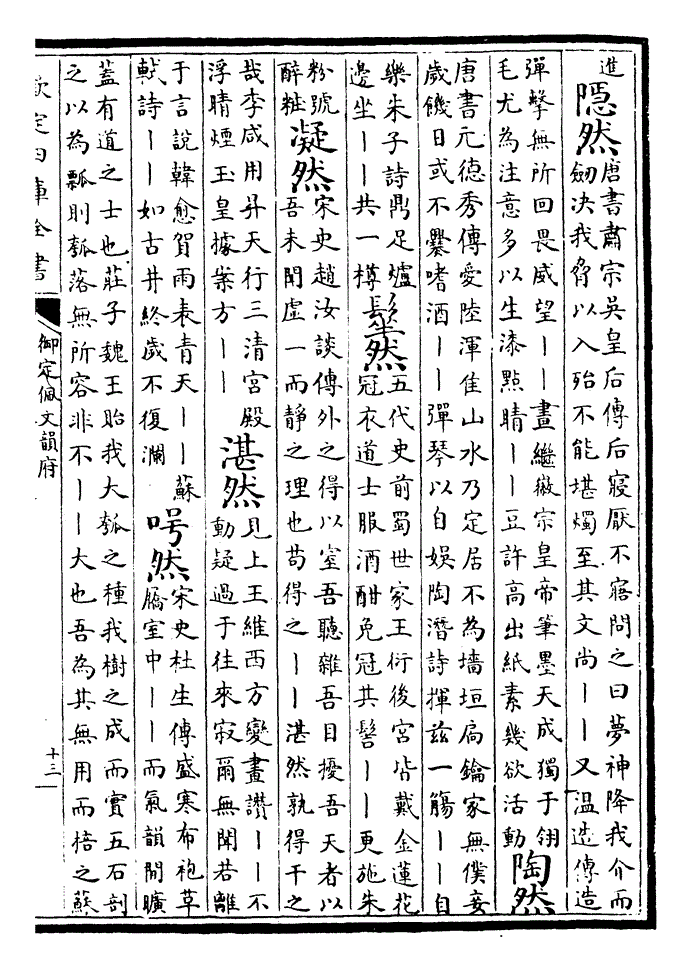 進
隱然
唐書肅宗吳皇后傳后寢厭不寤問之曰夢神降我介而
劒決我脅以入殆不能堪燭至其文尚丨丨又温造傳造
彈擊無所回畏威望丨丨畫繼徽宗皇帝筆墨天成獨于翎
毛尤為注意多以生漆點睛丨丨豆許高出紙素幾欲活動
陶然
唐書元德秀傳愛陸渾佳山水乃定居不為墻垣扃鑰家無僕妾
歲饑日或不爨嗜酒丨丨彈琴以自娛陶潛詩揮兹一觴丨丨自
樂朱子詩鼎足爐
邊坐丨丨共一樽
髽然
五代史前蜀世家王衍後宮皆戴金蓮花
冠衣道士服酒酣免冠其髻丨丨更施朱
粉號
醉粧
凝然
宋史趙汝談傳外之得以窒吾聽雜吾目擾吾天者以
吾未聞虛一而靜之理也苟得之丨丨湛然孰得干之
哉李咸用昇天行三清宮殿
浮晴煙玉皇據案方丨丨
湛然
見上王維西方變畫讃丨丨不
動疑過于往來寂爾無聞若離
于言說韓愈賀雨表青天丨丨蘇
軾詩丨丨如古井終歲不復瀾
呺然
宋史杜生傳盛寒布袍草
屩室中丨丨而氣韻閒曠
蓋有道之士也莊子魏王貽我大瓠之種我樹之成而實五石剖
之以為瓢則瓠落無所容非不丨丨大也吾為其無用而掊之蘇
欽定四庫全書
御定佩文韻府
十三